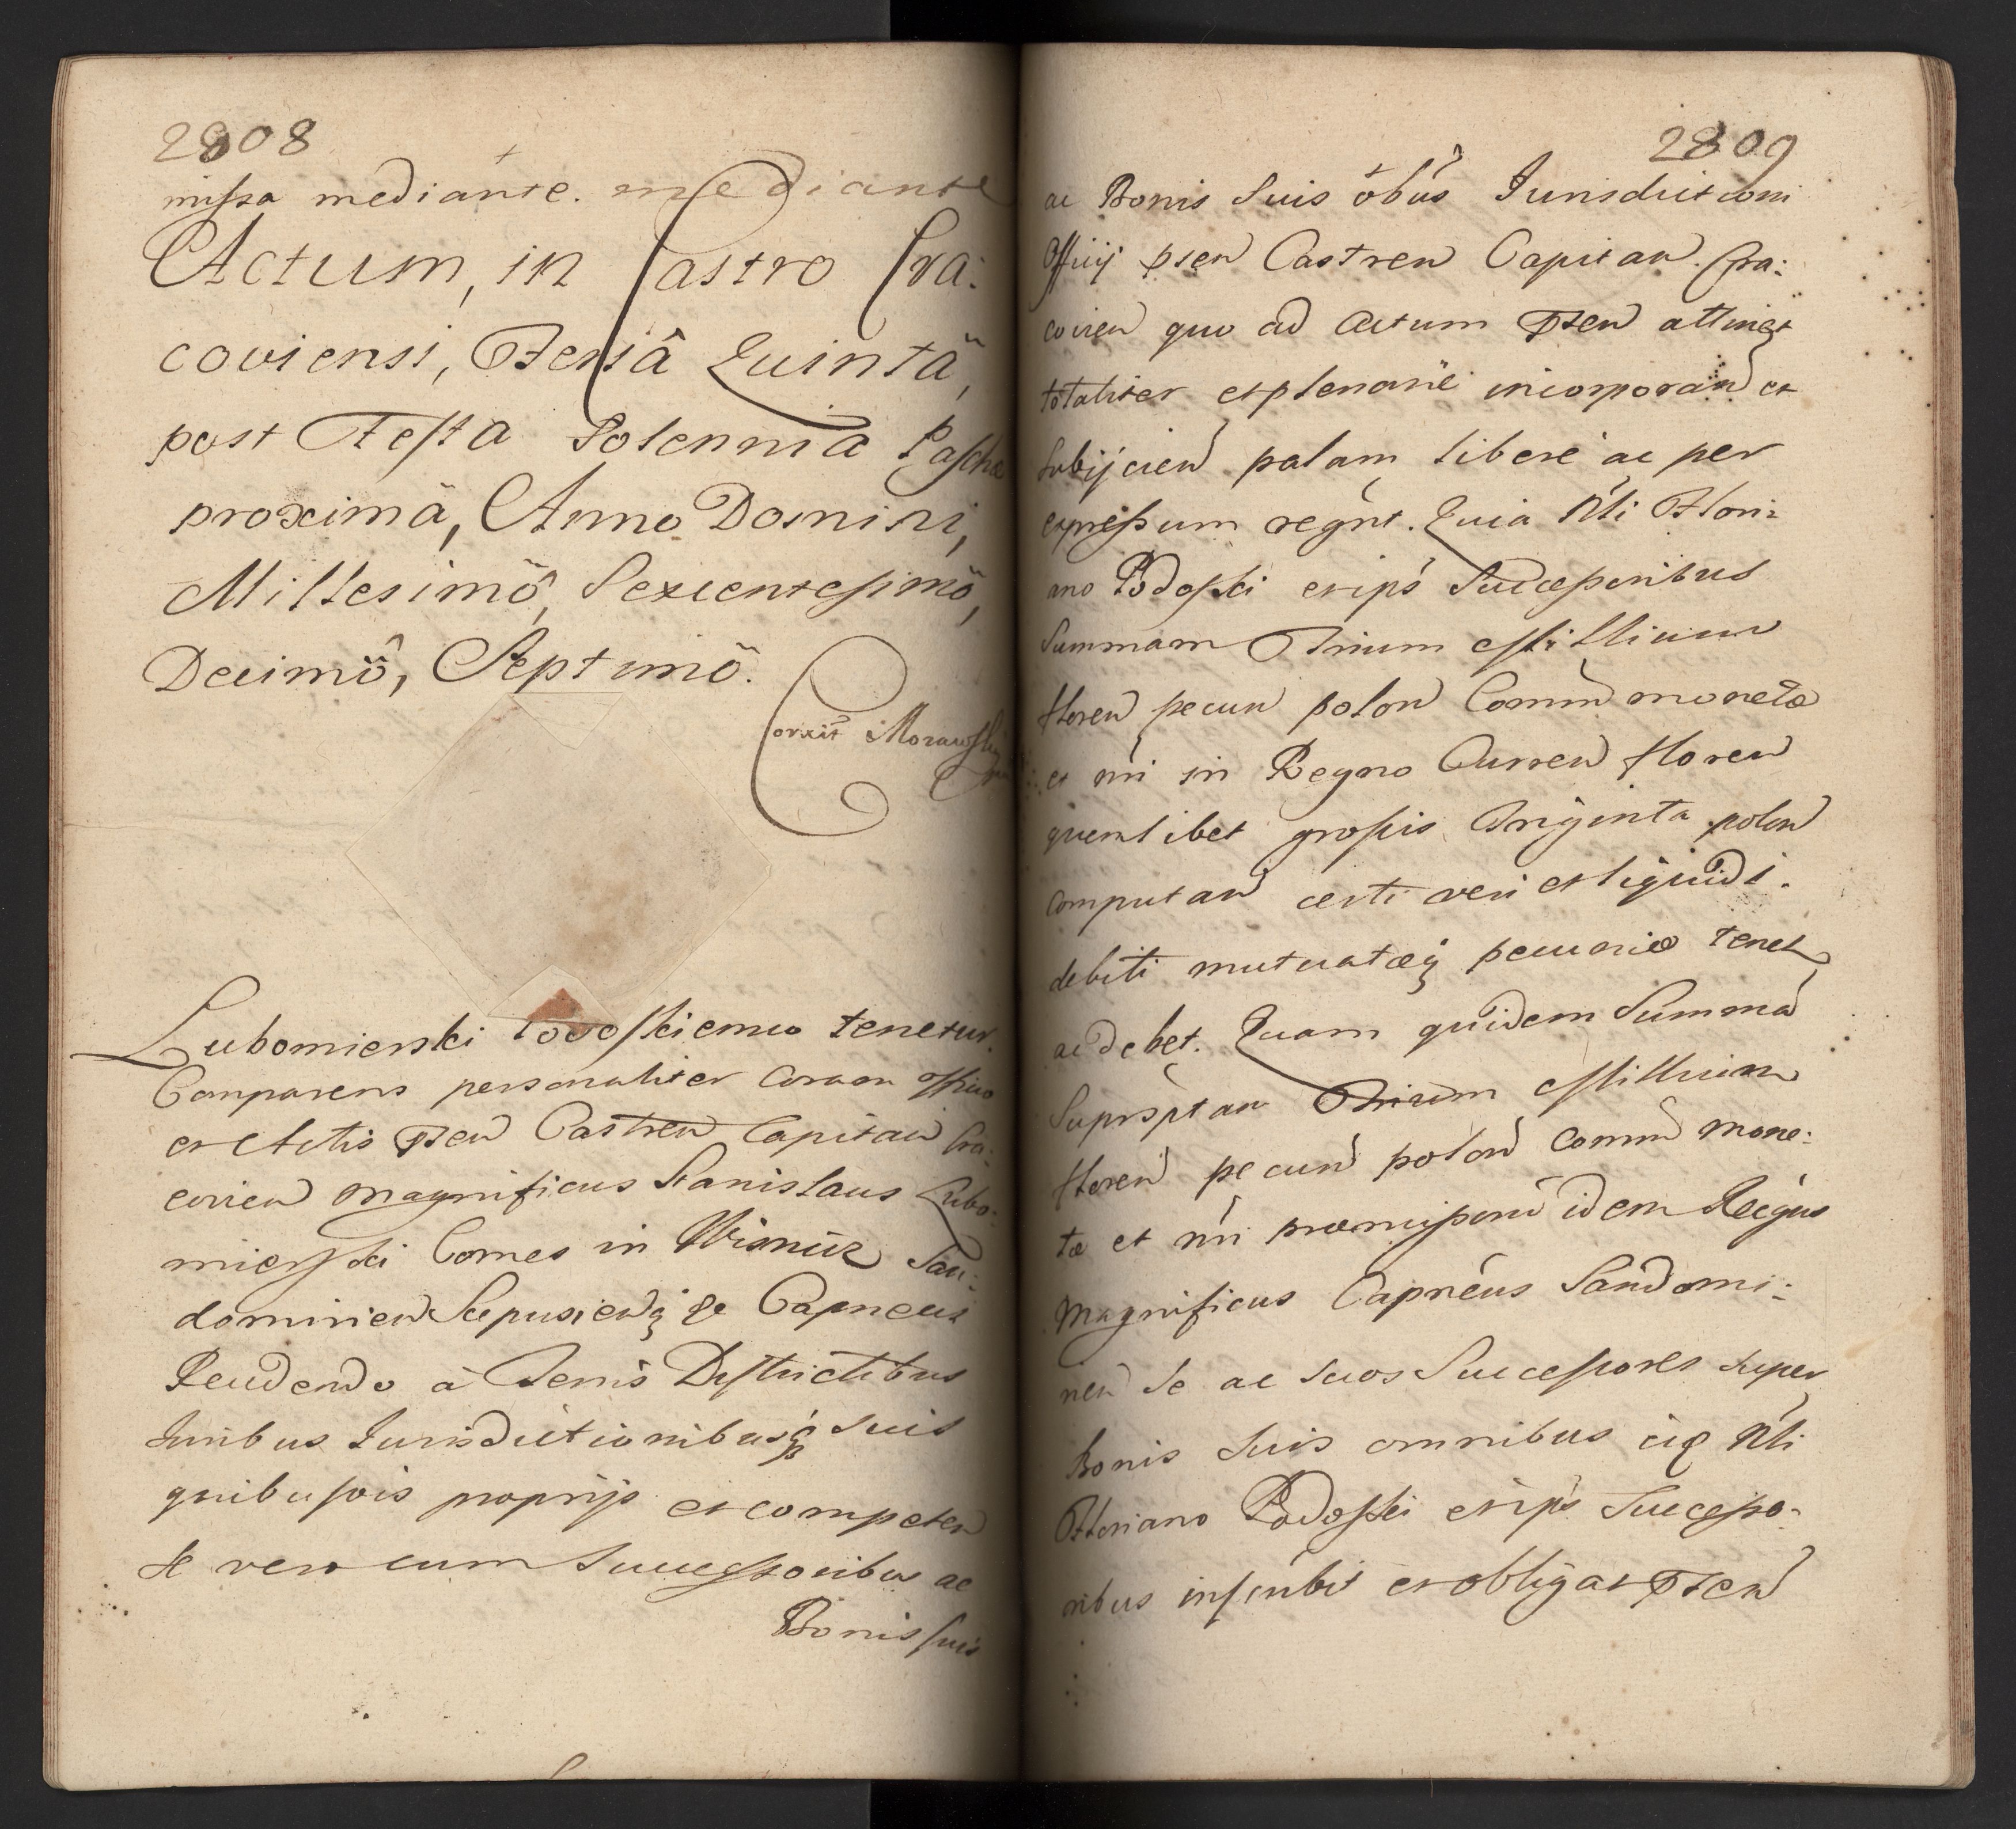 2808
missa mediante. mediante
Actum, in Castro Cra:
coviensi, Feriâ Quintâ,
post Festa Solennia Pascha
proximâ, Anno Domini,
Millesimô, Sexcentesimô,
Decimô, Septimô.
Corxit Morawski
Lubomierski Podoskiemu tenetur.
Comparens personaliter Coram officio
et Actis psen Castren Capitan Cra:
covien Magnificus Stanislaus Lubo:
mierski Comes in Wisnicz San:
domirien Scepusienq &c Capneus
Recedendo à Terris Districtibus
Juribus Jurisdictionibusq suis
quibusvis proprijs et competen
se vero cum Successoribus ac
Bonis suis
2809
ac Bonis Suis obus Jurisdictioni
Officij psen Castren Capitan. Cra:
covien quo ad Actum psen attinet
totaliter et plenariè incorporan et
subijcien palam liberè ac per
expressum regnt. Quia Nli Flori:
ano Podoski et ips Successoribus
Summam Trium Millium
floren pecun polon Comm moneta
et nri in Regno Curren floren
quemlibet grossis Triginta polon
computan certi veri et liquidi.
debiti mutuatæq pecuniæ tenet
ac debet. Quam quidem Summa
Suprsptan Trium Millium
floren pecun polon Comm mone:
tæ et nri præmissorum idem Recgns
Magnificus Capneus Sandomi:
rien se ac suos Successores super
Bonis suis omnibus Nli
Floriano Podoski et ips Successo:
ribus inscribit et obligat psen